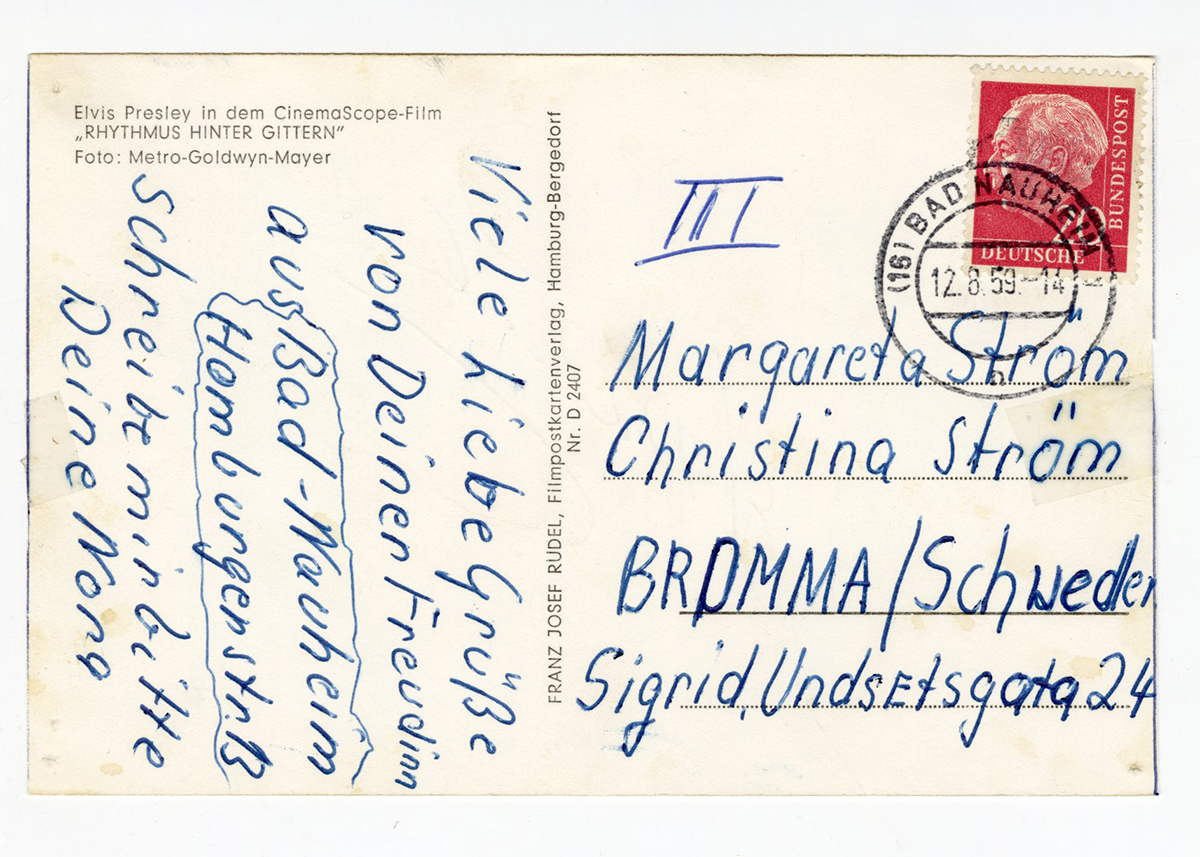 Elvis Presley in dem CinemaScope-Film
„RHYTHMUS HINTER GITTERN“
Foto: Metro-Goldwyn-Mayer
Viele Liebe Grüße
von Deiner Freudinn
aus Bad-Nauheim
Homburgerstr.
Schreibe mir bitte
Deine
FRANZ JOSEF RÜDEL, Filmpostkartenverlag, Hamburg-Bergedorf
Nr. D 2407
III
BUNDESPOST
DEUTSCHE
(16) BAD NAUHEIM
12.8.59.-14
Margareta Ström
Christina Ström
BROMMA/Schweden
Sigrid, Undsetsgata 24